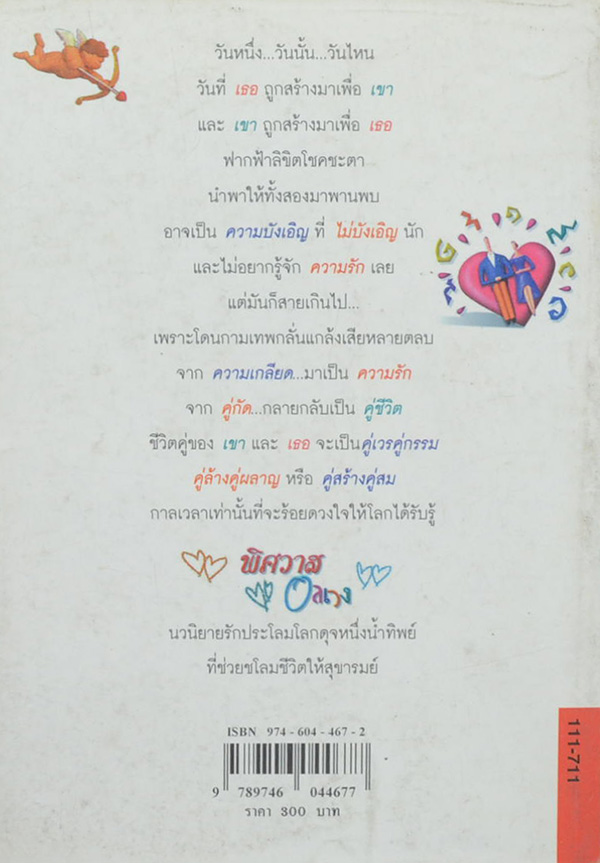 วันหนึ่ง...วันนั้น...วันไหน
วันที่ เธอ ถูกสร้างมาเพื่อ เขา
และ เขา ถูกสร้างมาเพื่อ เธอ
ฟากฟ้าลิขิตโชคชะตา
นำพาให้ทั้งสองมาพานพบ
อาจเป็น ความบังเอิญ ที่ ไม่บังเอิญ นัก
และไม่อยากรู้จัก ความรัก เลย
แต่มันก็สายเกินไป...
เพราะโดนกามเทพกลั่นแกล้งเสียหลายตลบ
จาก ความเกลียด...มาเป็น ความรัก
จาก คู่กัด...กลายกลับเป็น คู่ชีวิต
ชีวิตคู่ของ เขา และ เธอ จะเป็นคู่เวรคู่กรรม
คู่ล้างคู่ผลาญ หรือ คู่สร้างคู่สม
กาลเวลาเท่านั้นที่จะร้อยดวงใจให้โลกได้รับรู้
พิศวาส
อลเวง
นวนิยายรักประโลมโลกดุจหนึ่งน้ำทิพย์
ที่ช่วยชโลมชีวิตให้สุขารมย์
ISBN 974-604-467-2
9 789746 044677
ราคา 300 บาท
111-711